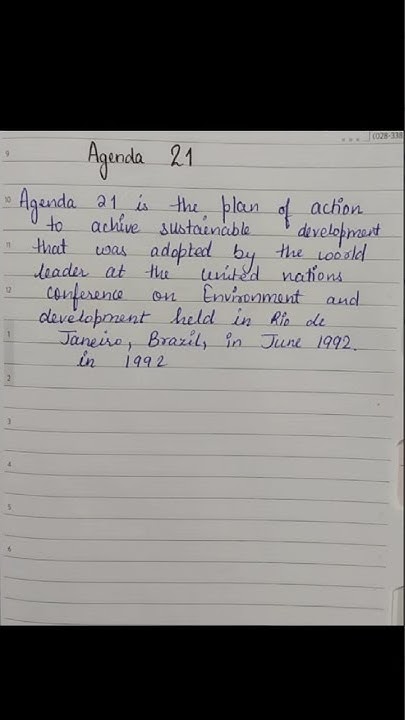 (028-338
9
Agenda 21
10 Agenda 21 is the plan of action
to achive sustainable development
11 that was adopted by the world
leader at the united nations
12 conference on Environment and
development held in Rio de
1 Janeiro, Brazil, in June 1992.
in 1992
2
3
4
5
6